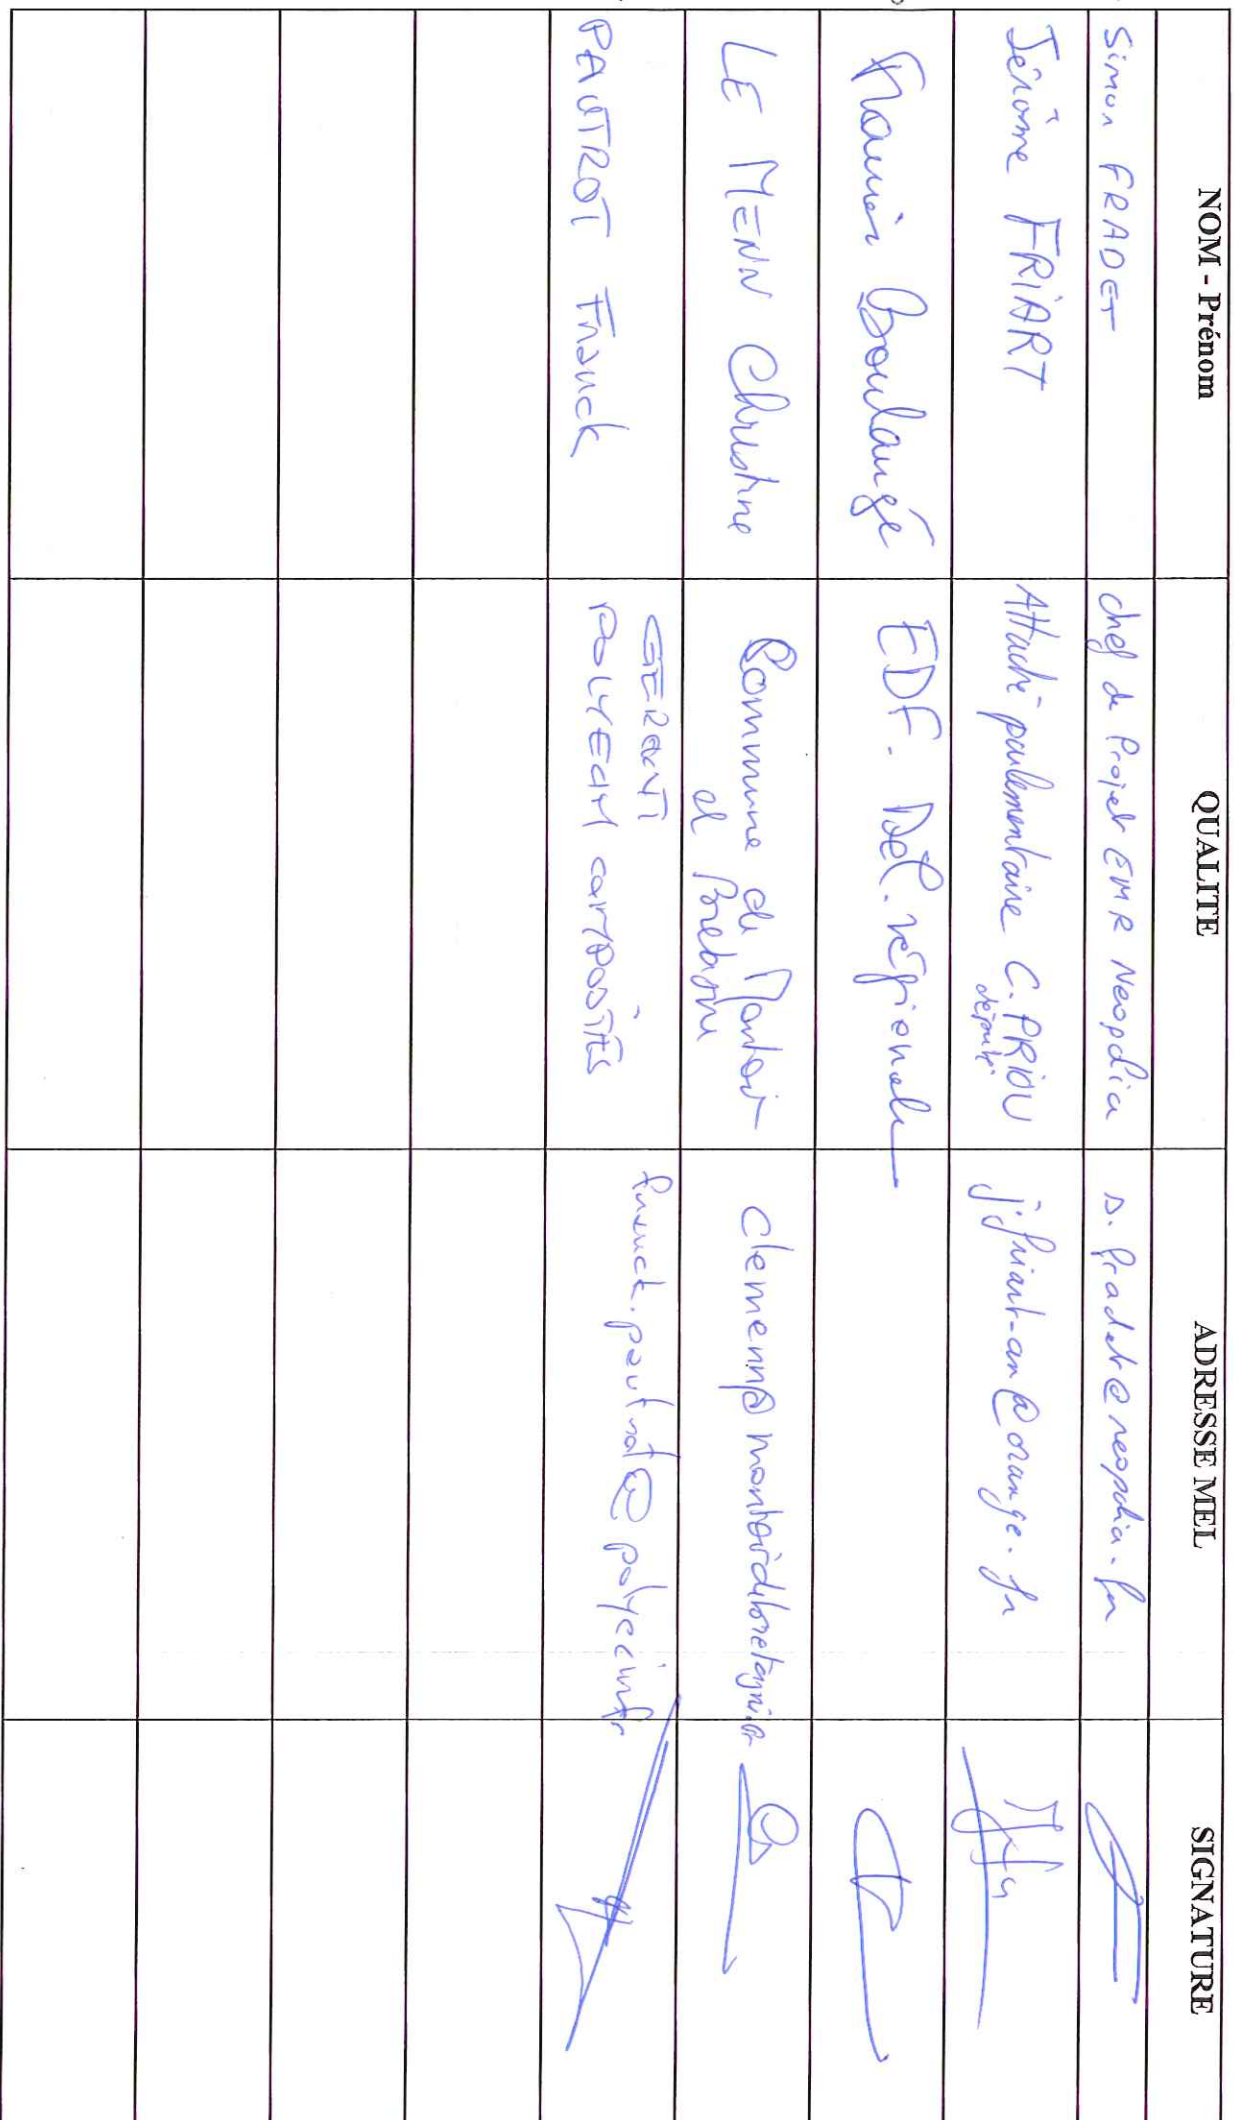 NOM - Prénom
QUALITE
ADRESSE MEL
SIGNATURE
Simon FRADET
chef de Projet EMR Neopolia
s.fradet@neopolia.fr
Jérôme FRIART
Attaché parlementaire C. PRIOU
député
j.friart-an@orange.fr
Boulangé
EDF. Dél. régionale
LE MENN Christine
Commune de Montoir
de Bretagne
clemenn@montoirdebretagne.fr
PAUTROT Franck
GERANT
POLYEAM COMPOSITES